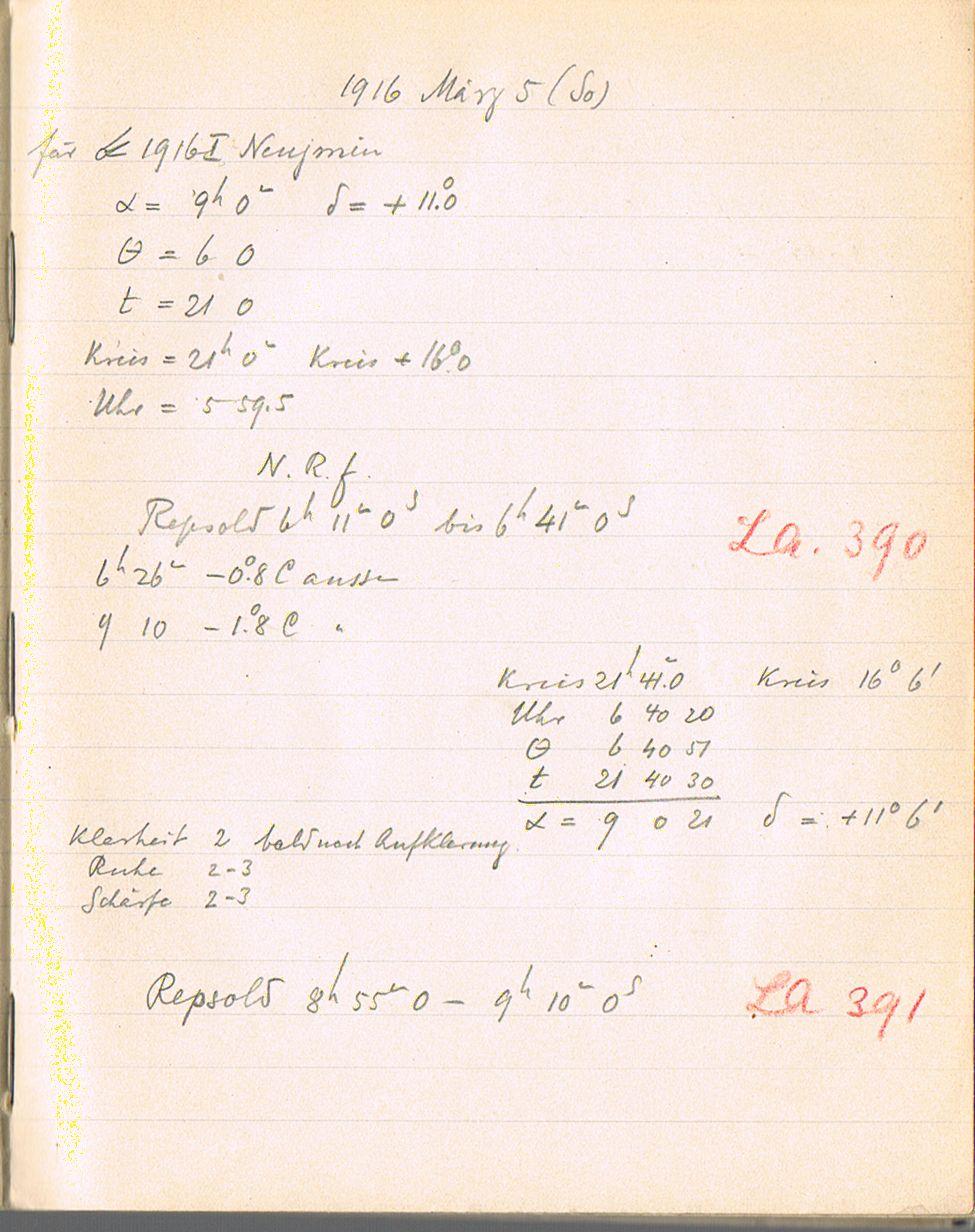 1916 März 5 (So)
für ☄ 1916 I Neujmin
α = 9ʰ 0ᵐ δ = + 11.⁰0
θ = 6 0
t = 21 0
Kreis = 21ʰ 0ᵐ Kreis + 16.⁰0
Uhr = 5 59.5
N. R. f.
Repsold 6ʰ 11ᵐ 0ˢ bis 6ʰ 41ᵐ 0ˢ
La. 390
6ʰ 26ᵐ −0.⁰8 C aussen
9 10 −1.⁰8 C "
Kreis 21ʰ 41.ᵐ0 Kreis 16⁰ 6'
Uhr 6 40 20
θ 6 40 51
t 21 40 30
α = 9 0 21 δ = +11⁰ 6'
Klarheit 2 bald nach Aufklarung
Ruhe 2-3
Schärfe 2-3
Repsold 8ʰ 55ᵐ 0 − 9ʰ 10ᵐ 0ˢ
LA 391